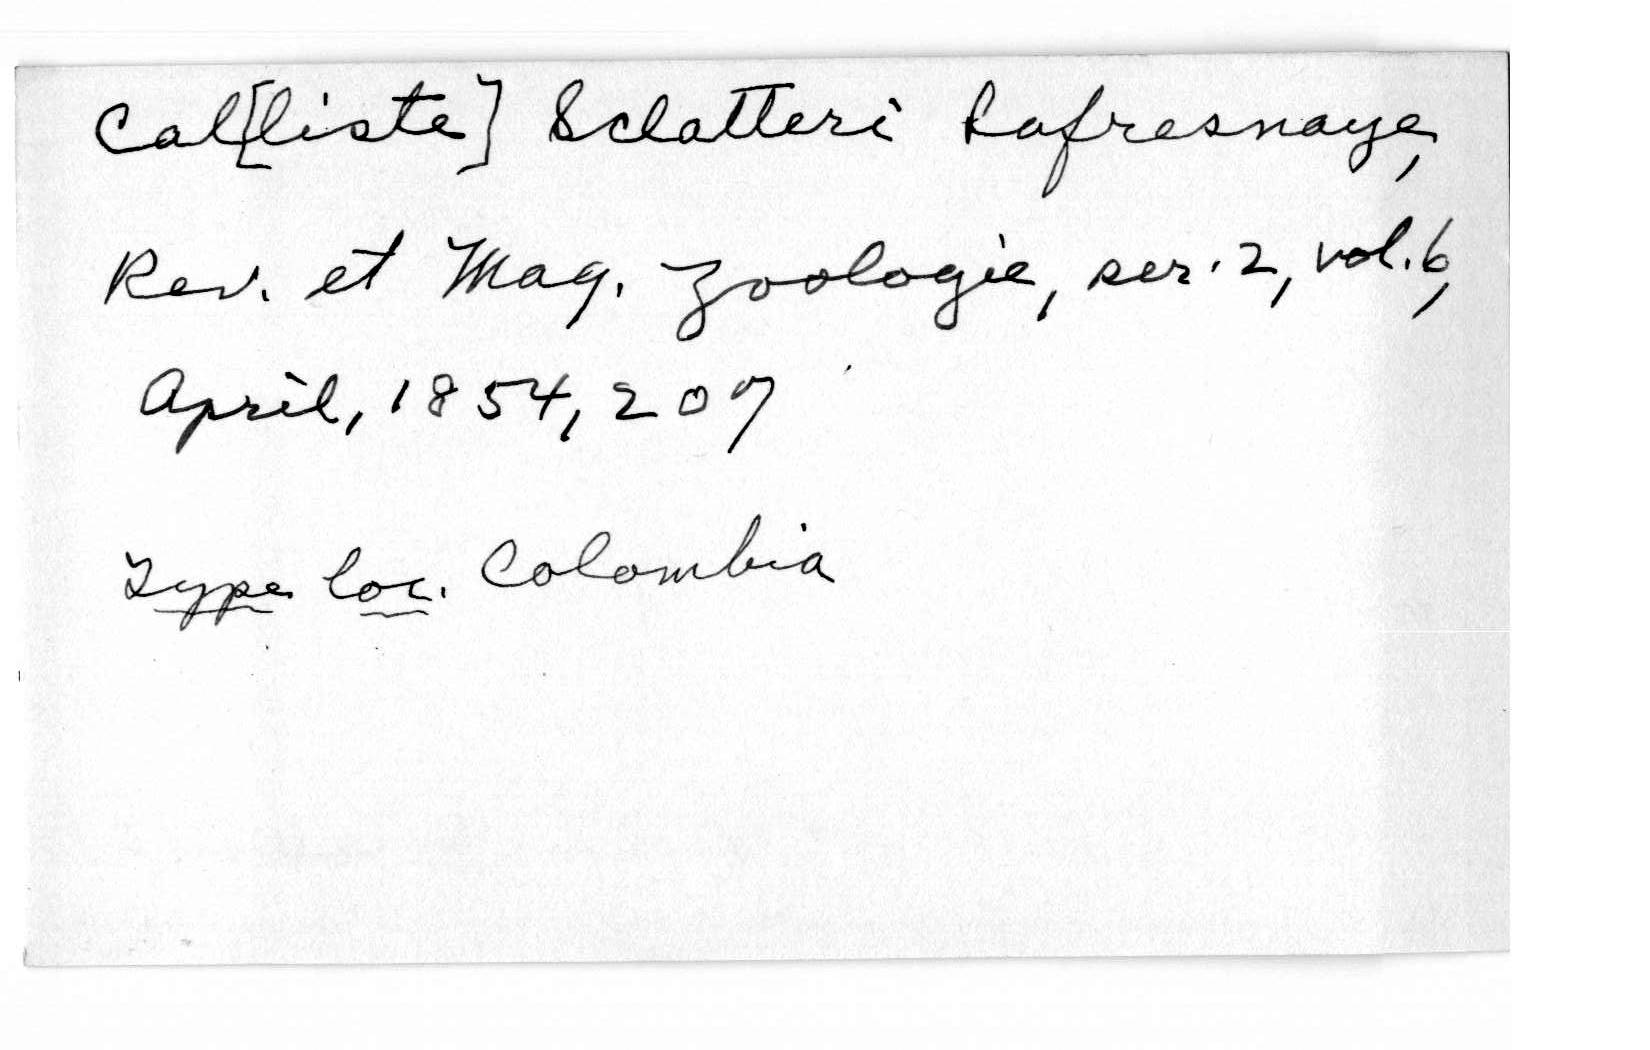 Cal[liste] Sclatteri Lafresnaye,
Rev. et Mag. Zoologie, ser. 2, vol. 6,
April, 1854, 207
Type loc. Colombia